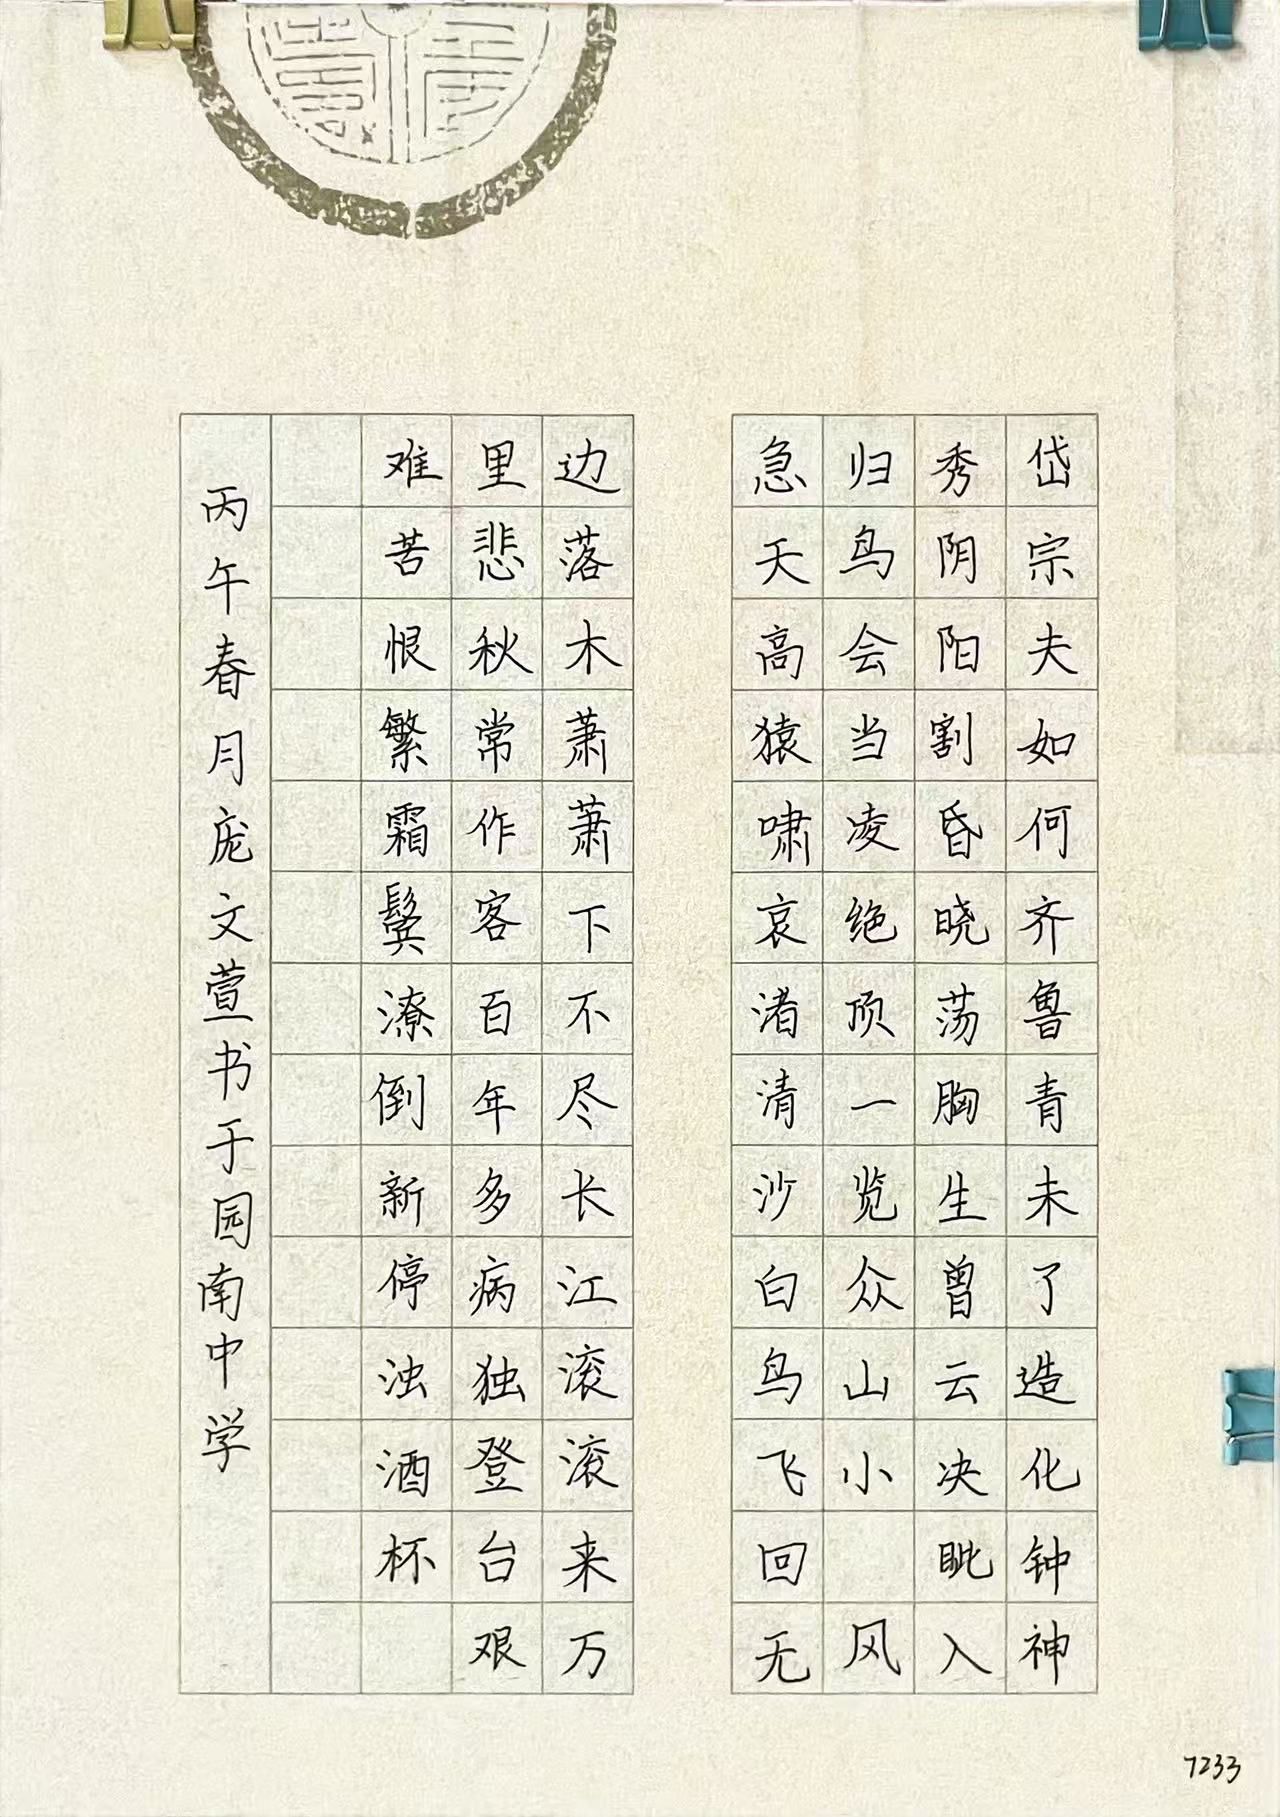 岱宗夫如何齐鲁青未了造化钟神
秀阴阳割昏晓荡胸生曾云决眦入
归鸟会当凌绝顶一览众山小 风
急天高猿啸哀渚清沙白鸟飞回无
边落木萧萧下不尽长江滚滚来万
里悲秋常作客百年多病独登台艰
难苦恨繁霜鬓潦倒新停浊酒杯
丙午春月庞文萱书于园南中学
7233